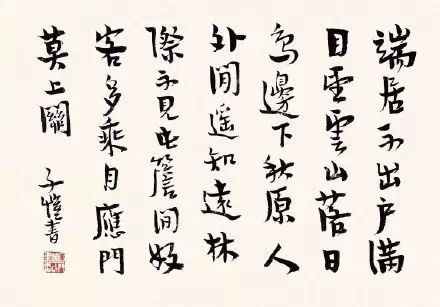 端居不出户满
目望雲山落日
鸟邊下秋原人
外閒遥知遠林
際不見此簷間好
客多乘月應門
莫上關
子愷書